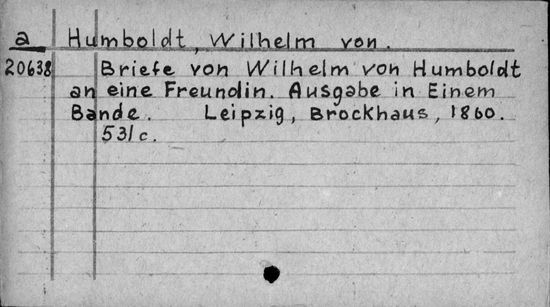 a Humboldt, Wilhelm von.
20638 Briefe von Wilhelm von Humboldt
an eine Freundin. Ausgabe in Einem
Bande. Leipzig, Brockhaus, 1860.
531 c.